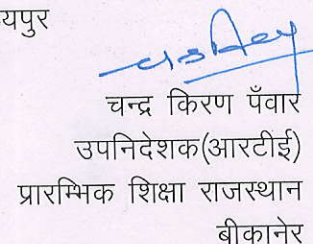 यपुर
चन्द्र किरण पँवार
उपनिदेशक(आरटीई)
प्रारम्भिक शिक्षा राजस्थान
बीकानेर